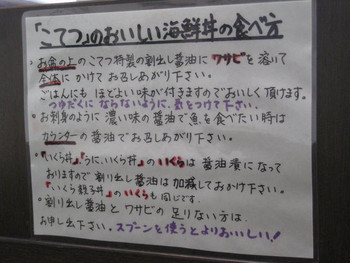 「こてつ」のおいしい海鮮丼の食べ方
・お盆の上のこてつ特製の割出し醤油にワサビを溶いて
全体にかけてお召しあがり下さい。
ごはんにもほどよい味が付きますのでおいしく頂けます。
つゆだくにならないように、気をつけて下さい。
・お刺身のように濃い味の醤油で魚を食べたい時は
カウンターの醤油でお召しあがり下さい。
・『いくら丼』『うに、いくら丼』のいくらは醤油漬になって
おりますので割り出し醤油は加減しておかけ下さい。
『いくら親子丼』のいくらも同じです。
・割り出し醤油とワサビの足りない方は、
お申し出下さい。スプーンを使うとよりおいしい!